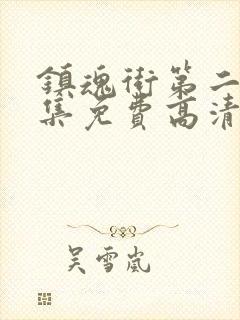 鎮魂街第二
集免費高清
吴雪嵐